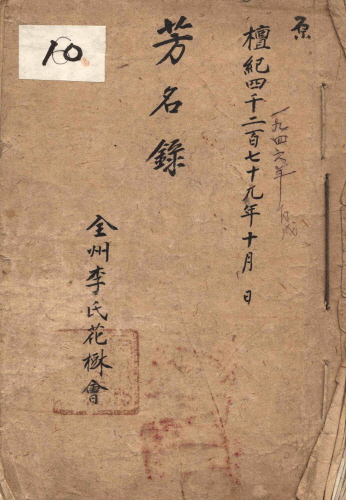 原
檀紀四千二百七十九年十月 日
一九四六年
芳名錄
全州李氏花樹會
10